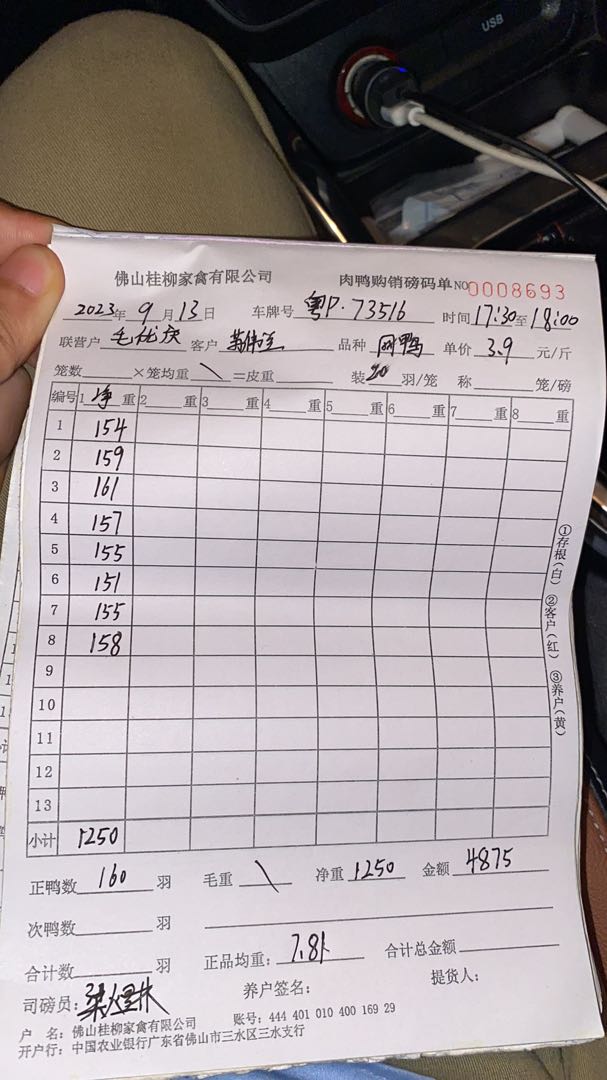 USB
佛山桂柳家禽有限公司 肉鸭购销磅码单 NO 0008693
2023年 9月 13日 车牌号 粤P·73516 时间 17:30至18:00
联营户 客户 品种 鸭 单价 3.9 元/斤
笼数 ×笼均重 \ =皮重 装 20 羽/笼 称 笼/磅
编号 1 净 重 2 重 3 重 4 重 5 重 6 重 7 重 8 重
1 154
2 159
3 161
4 157
5 155
6 151
7 155
8 158
9
10
11
12
13
小计 1250
正鸭数 160 羽 毛重 \ 净重 1250 金额 4875
次鸭数 羽
合计数 羽 正品均重: 7.81 合计总金额
司磅员: 养户签名: 提货人:
户 名: 佛山桂柳家禽有限公司 账号: 444 401 010 400 169 29
开户行: 中国农业银行广东省佛山市三水区三水支行
①存根(白) ②客户(红) ③养户(黄)